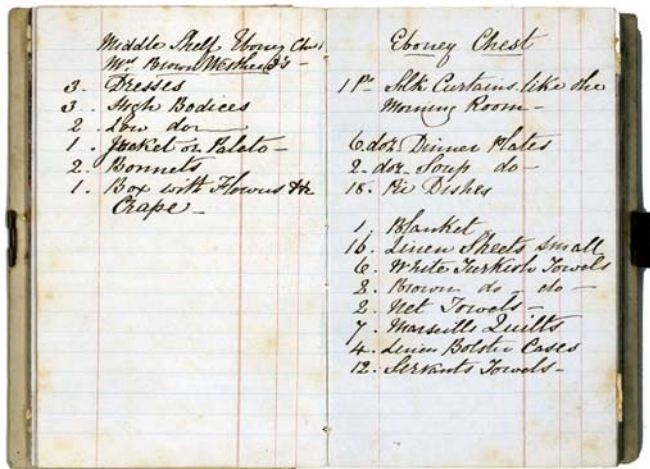 Middle Shelf Ebony Chest
Mrs Brown Westhead's -
3. Dresses
3. High Bodices
2. Low do -
1. Jacket or Paleto -
2. Bonnets
1. Box with Flowers &c
Crape -
Eboney Chest
1 Pr Silk Curtains like the
Morning Room -
6 doz Dinner Plates
2. doz Soup do -
18. Pie Dishes
1. Blanket
16. Linen Sheets small
6. White Turkish Towels
8. Brown do - do -
2. Net Towels -
7. Marseills Quilts
4. Linen Bolster Cases
12. Servants Towels -